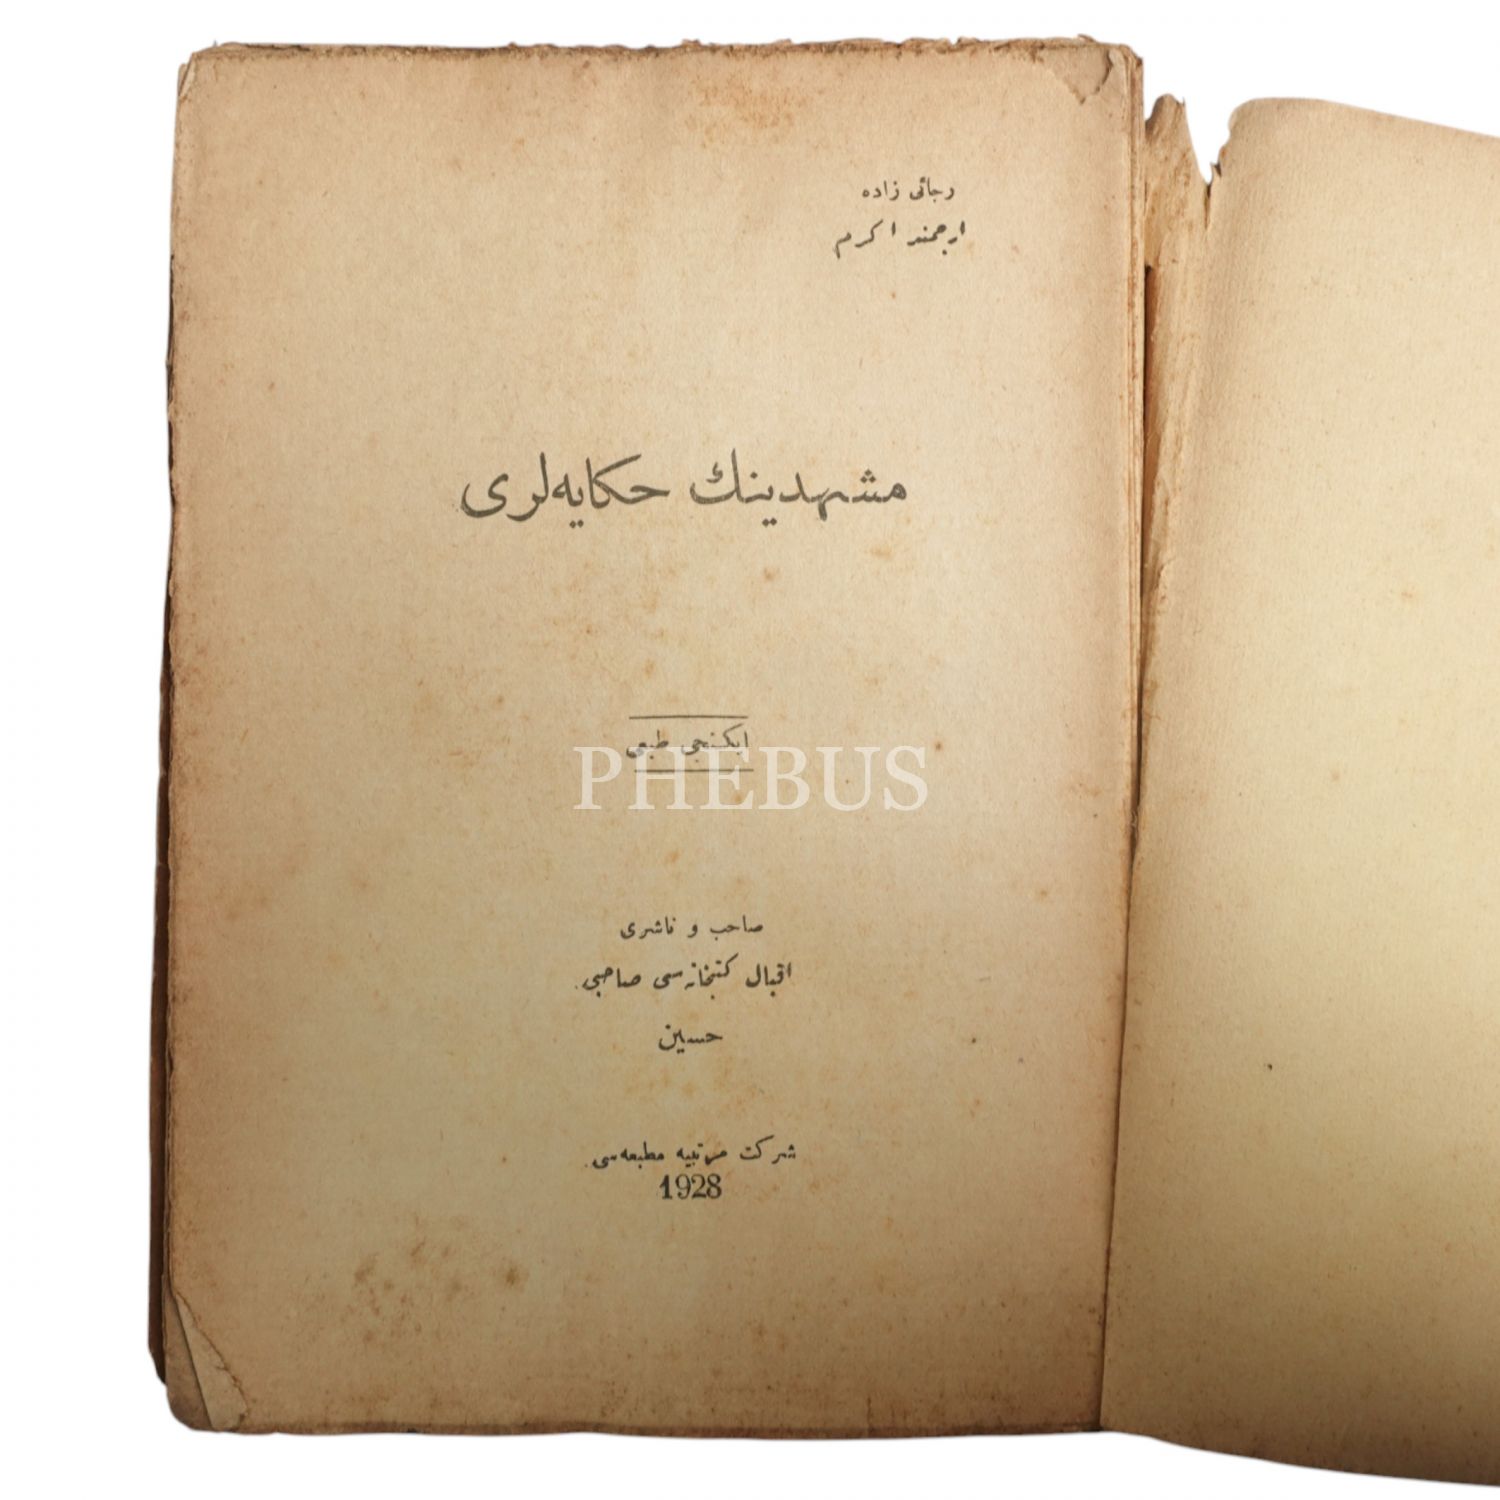 رجائی زاده
ارجمند اکرم
مشهدینك حکایه‌لری
ایکنجی طبعی
PHEBUS
صاحب و ناشری
اقبال کتبخانه‌سی صاحبی
حسین
شرکت مرتبیه مطبعه‌سی
1928